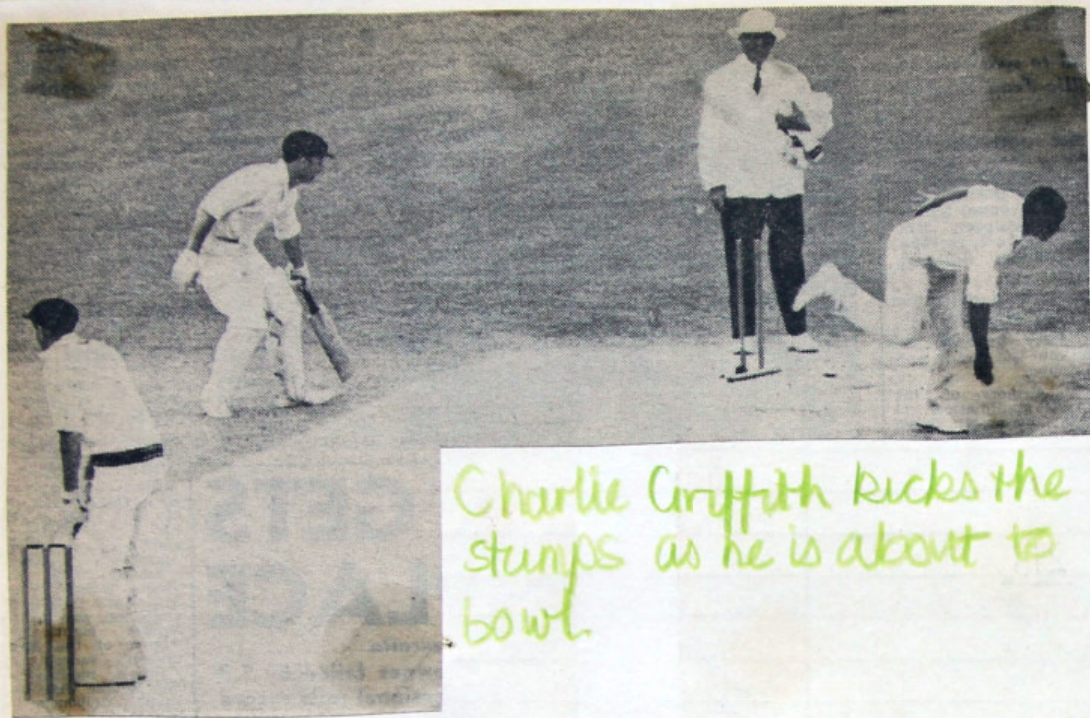 Charlie Griffith kicks the
stumps as he is about to
bowl.